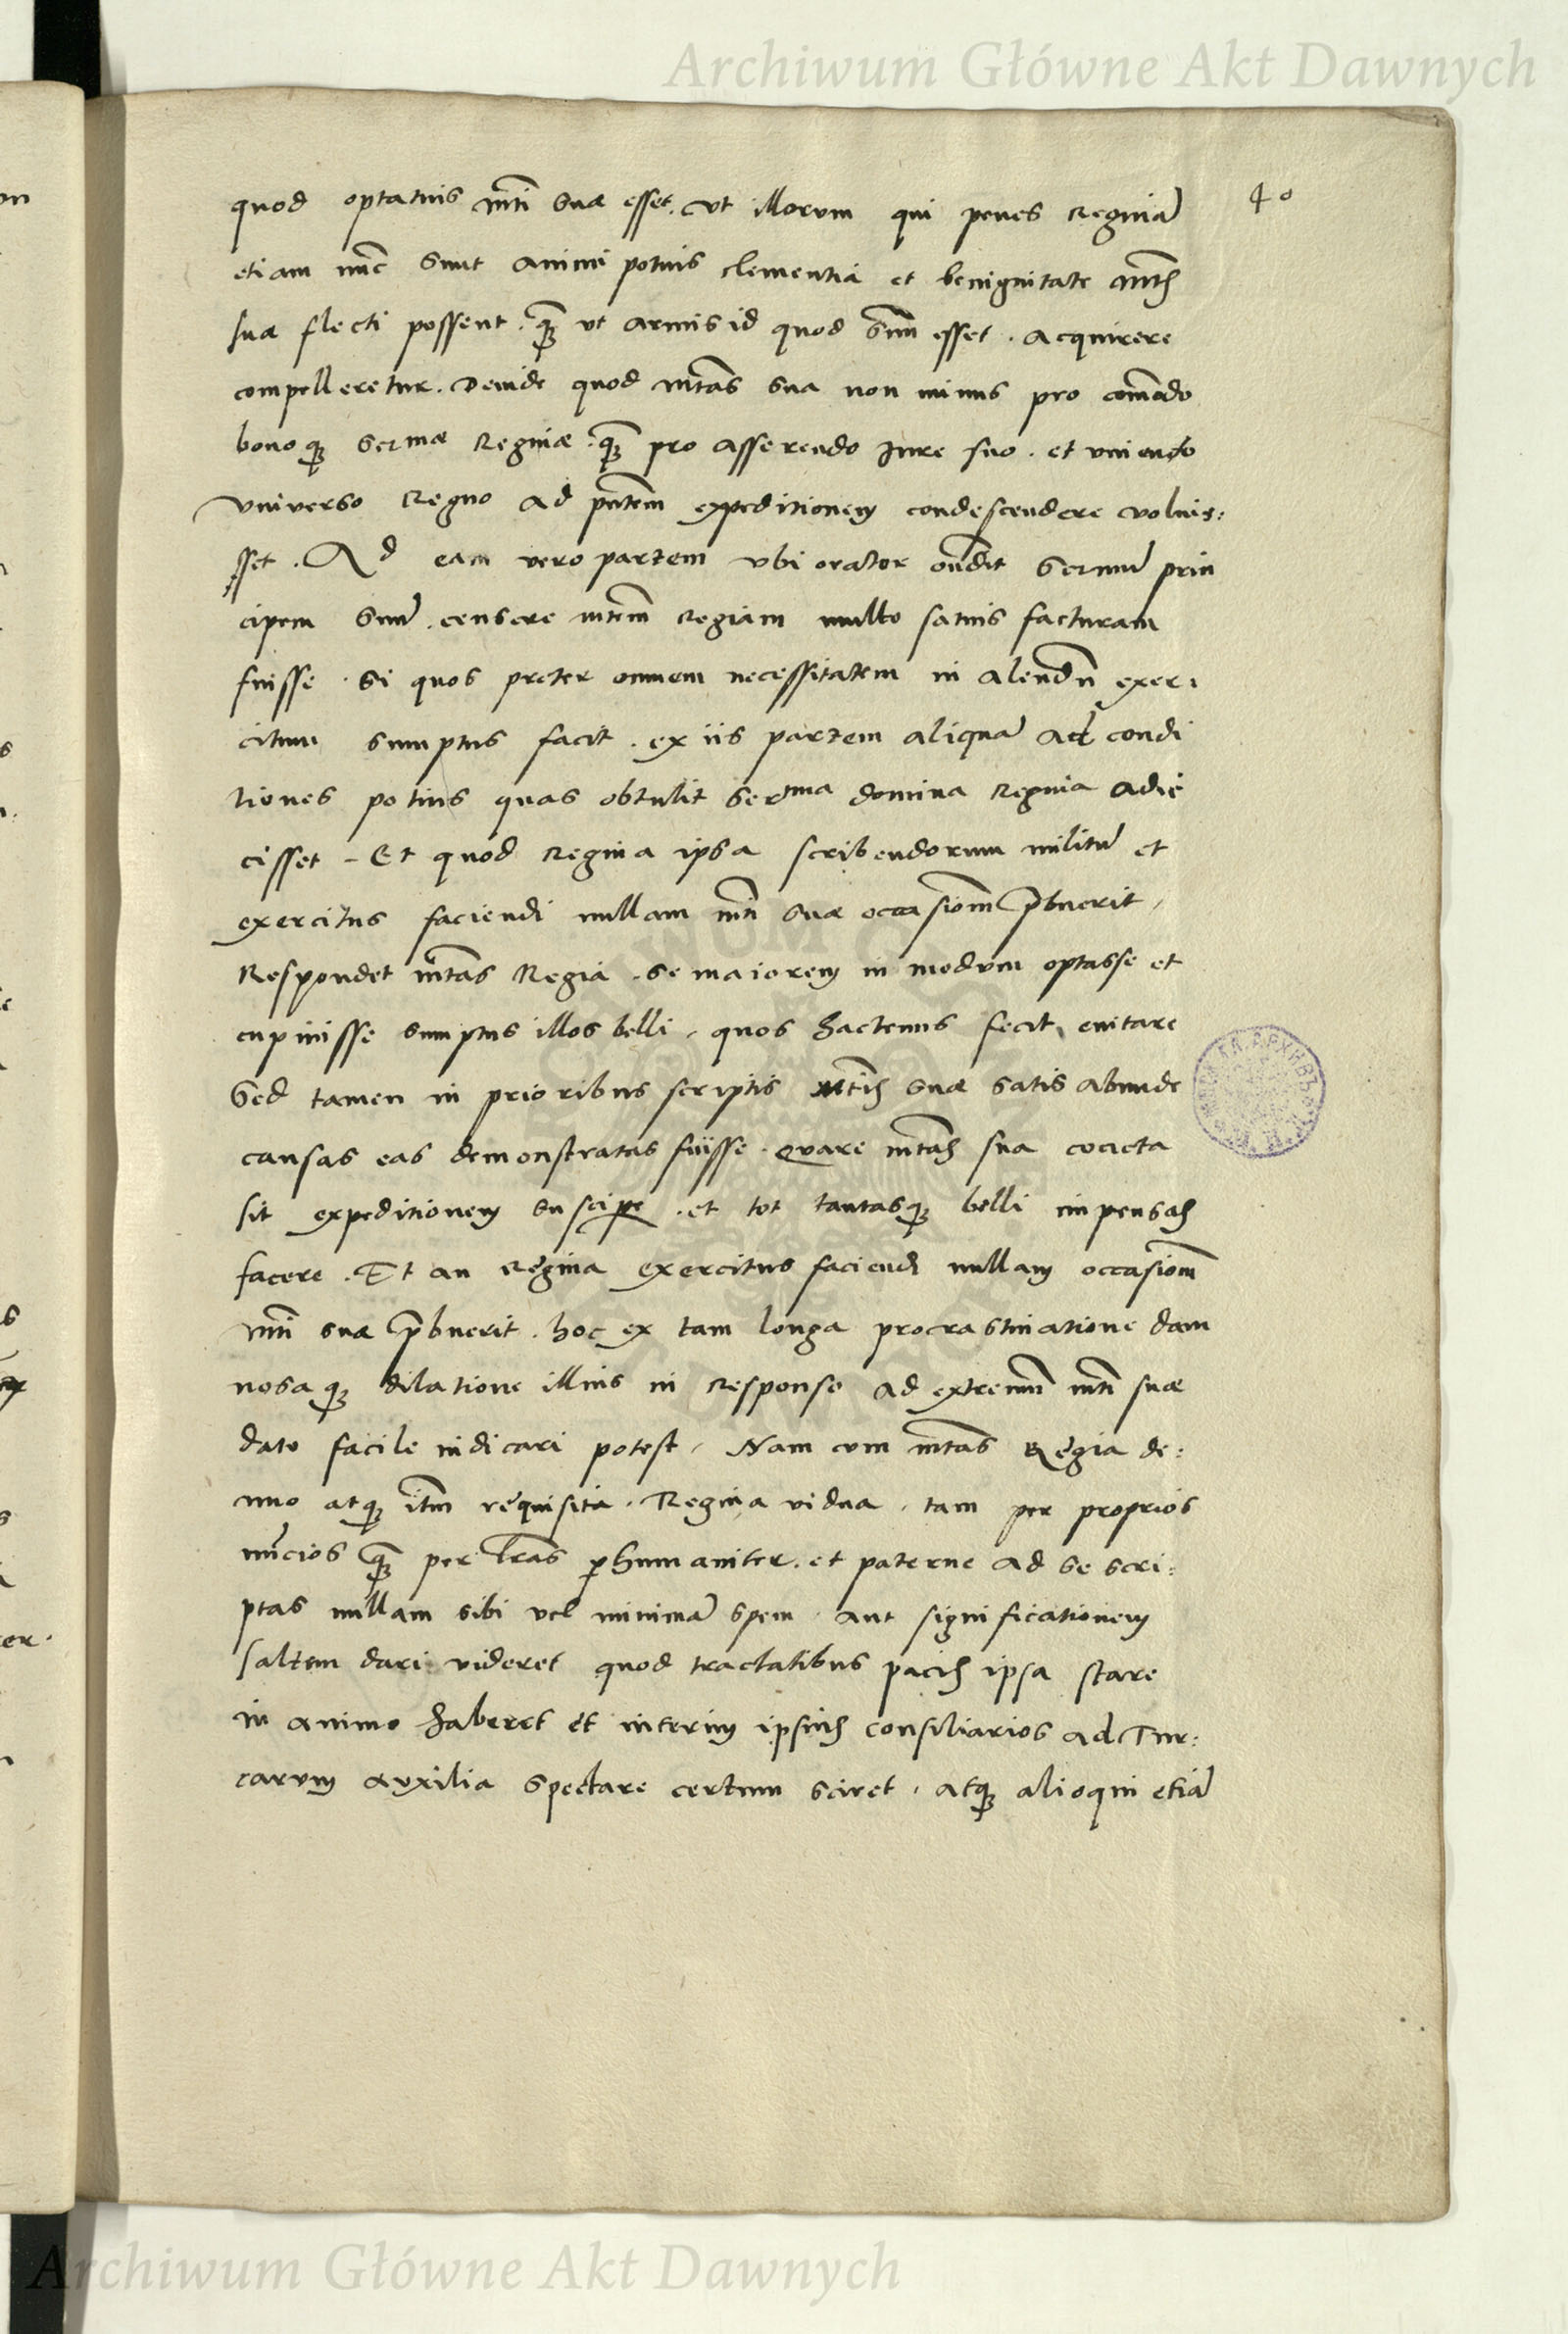 Archiwum Główne Akt Dawnych
40
quod optatius mti suæ esset. ut illorum qui penes Reginã
etiam nũc sunt animi potius clementia et benignitate mtis
suæ flecti possent. q̃ ut armis id quod suũ esset. acquirere
compelleretur. Deinde quod mtas sua non minus pro cõmodo
bonoq; sermæ Reginæ. q̃ pro asserendo Jure suo. et uniendo
universo Regno ad pñtem expeditionem condescendere voluis:
sset. Ad eam vero partem ubi orator oñdit sermũ prin
cipem suũ. censere mtem Regiam multo satius facturam
fuisse. si quos preter omnem necessitatem in alendũ exer:
citum sumptus facit. ex iis partem aliquã ad condi
tiones potius quas obtulit serma domina Regina adie
cisset. Et quod Regina ipsa scribendorum militũ et
exercitus faciendi nullam mti suæ occasiom p̃buerit,
Respondet mtas Regia. se maiorem in modum optasse et
cupiuisse sumptus illos belli, quos hactenus fecit, euitare
Sed tamen in prioribus scriptis mtis suæ satis abunde
causas eas demonstratas fuisse. Quare mtas sua coacta
sit expeditionem suscipe. et tot tantasq; belli impensas
facere. Et an Regina exercitus faciendi nullam occasiom
mti suæ p̃buerit. hoc ex tam longa procrastinatione dam
nosaq; dilatione illius in Responso ad extremũ mti suæ
dato facile iudicari potest, Nam cum mtas Regia de:
nuo atq; itm requisita. Regina vidua. tam per proprios
nũcios q̃ per lras perhumaniter. et paterne ad se scri:
ptas nullam sibi vel minimã spem. aut significationem
saltem dari videret quod tractatibus pacis ipsa stare
in animo haberet et interim ipsius consiliarios ad Tur:
carum auxilia spectare certum sciret. atq; alioqui etiã
Archiwum Główne Akt Dawnych